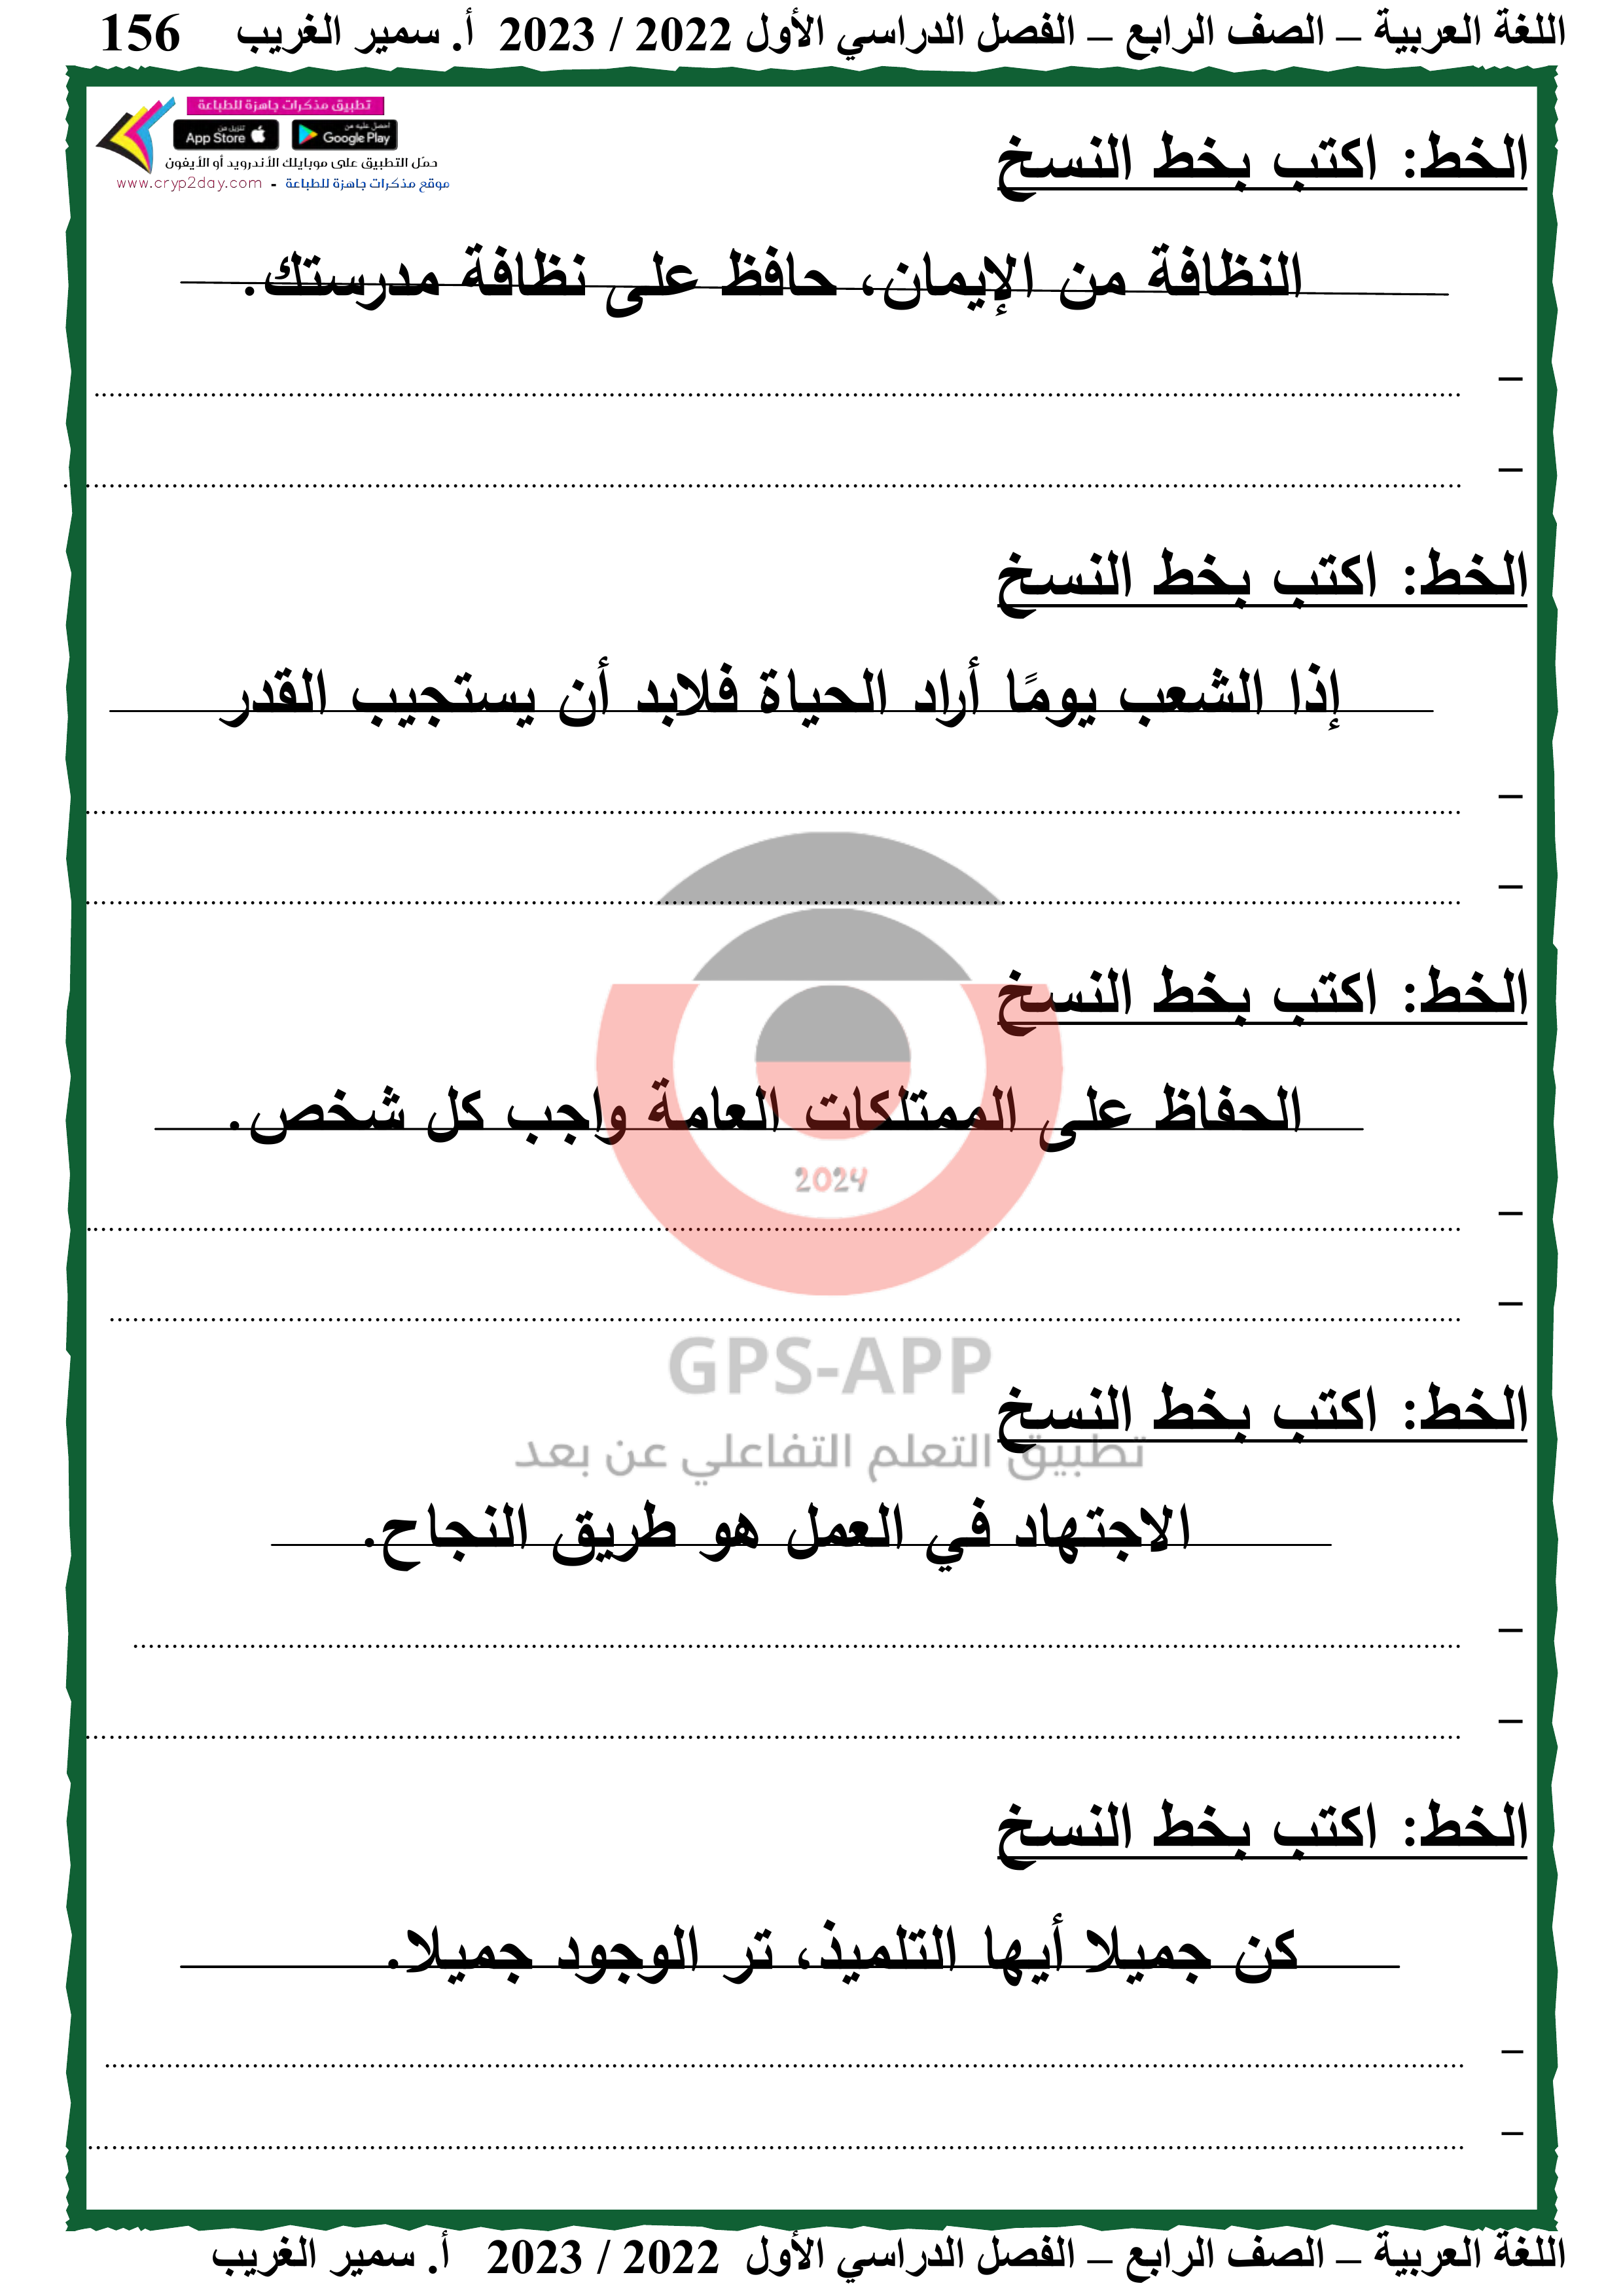 اللغة العربية – الصف الرابع – الفصل الدراسي الأول 2022 / 2023 أ. سمير الغريب 156
تطبيق مذكرات جاهزة للطباعة
احصل عليه من Google Play تنزيل من App Store
حمّل التطبيق على موبايلك الأندرويد أو الأيفون
موقع مذكرات جاهزة للطباعة - www.cryp2day.com
الخط: اكتب بخط النسخ
النظافة من الإيمان، حافظ على نظافة مدرستك.
–
–
الخط: اكتب بخط النسخ
إذا الشعب يومًا أراد الحياة فلابد أن يستجيب القدر
–
–
الخط: اكتب بخط النسخ
الحفاظ على الممتلكات العامة واجب كل شخص.
2024
–
–
GPS-APP
الخط: اكتب بخط النسخ
تطبيق التعلم التفاعلي عن بعد
الاجتهاد في العمل هو طريق النجاح.
–
–
الخط: اكتب بخط النسخ
كن جميلا أيها التلميذ، تر الوجود جميلا.
–
–
اللغة العربية – الصف الرابع – الفصل الدراسي الأول 2022 / 2023 أ. سمير الغريب